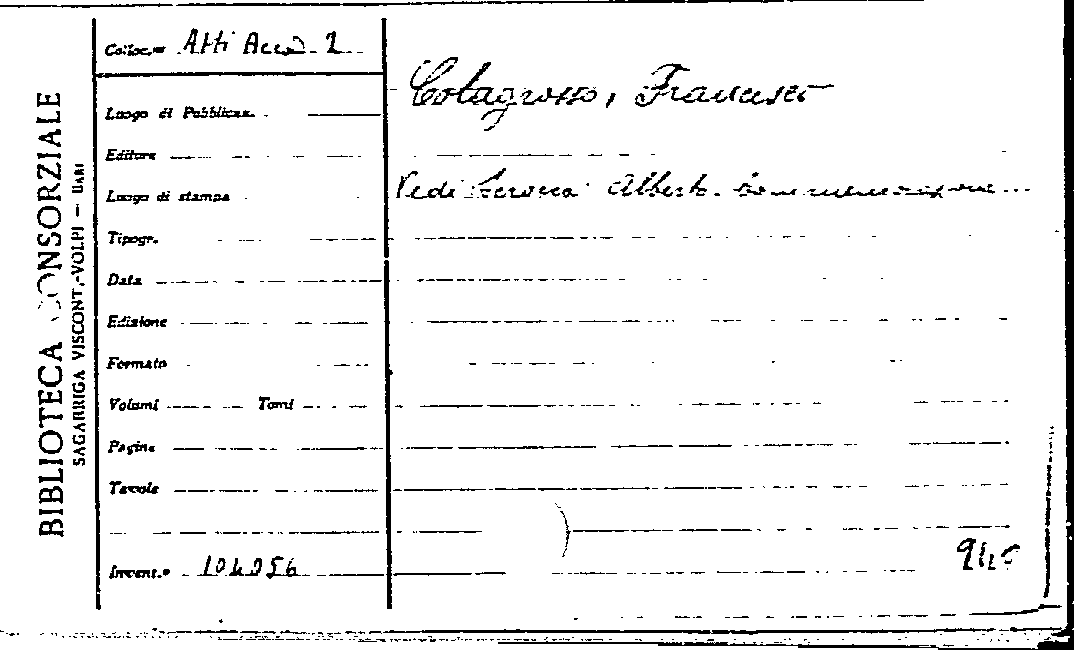 BIBLIOTECA CONSORZIALE
SAGARRIGA VISCONTI-VOLPI — BARI
Colloc.ne Atti Acc. 1
Luogo di Pubblicaz.
Editore
Luogo di stampa
Tipogr.
Data
Edizione
Formato
Volumi Tomi
Pagine
Tavole
Invent.º 104056
Colagrosso, Francesco
Vedi: Alberto. Commemorazione...